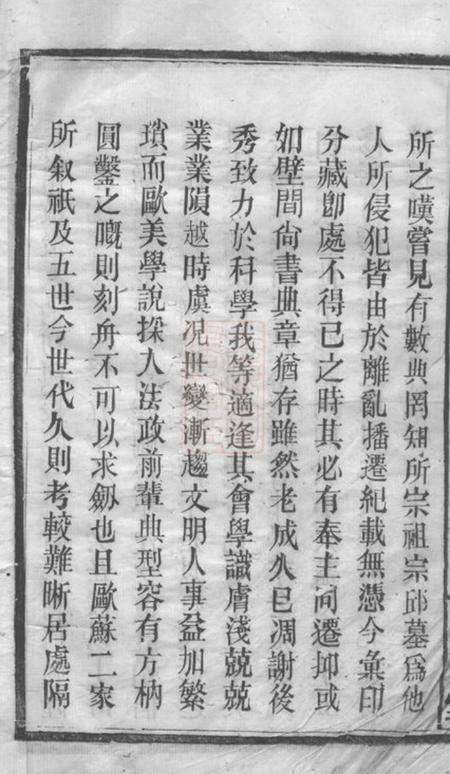 所之嘆嘗見有數典罔知所宗祖宗邱墓爲他
人所侵犯皆由於離亂播遷紀載無憑今彙印
分藏卽處不得已之時其必有奉主同遷抑或
如壁間尙書典章猶存雖然老成久已凋謝後
秀致力於科學我等適逢其會學識膚淺兢兢
業業隕越時虞况世變漸趨文明人事益加繁
瑣而歐美學說採入法政前輩典型容有方枘
圓鑿之嘅則刻舟不可以求劍也且歐蘇二家
所叙祇及五世今世代久則考較難晰居處隔